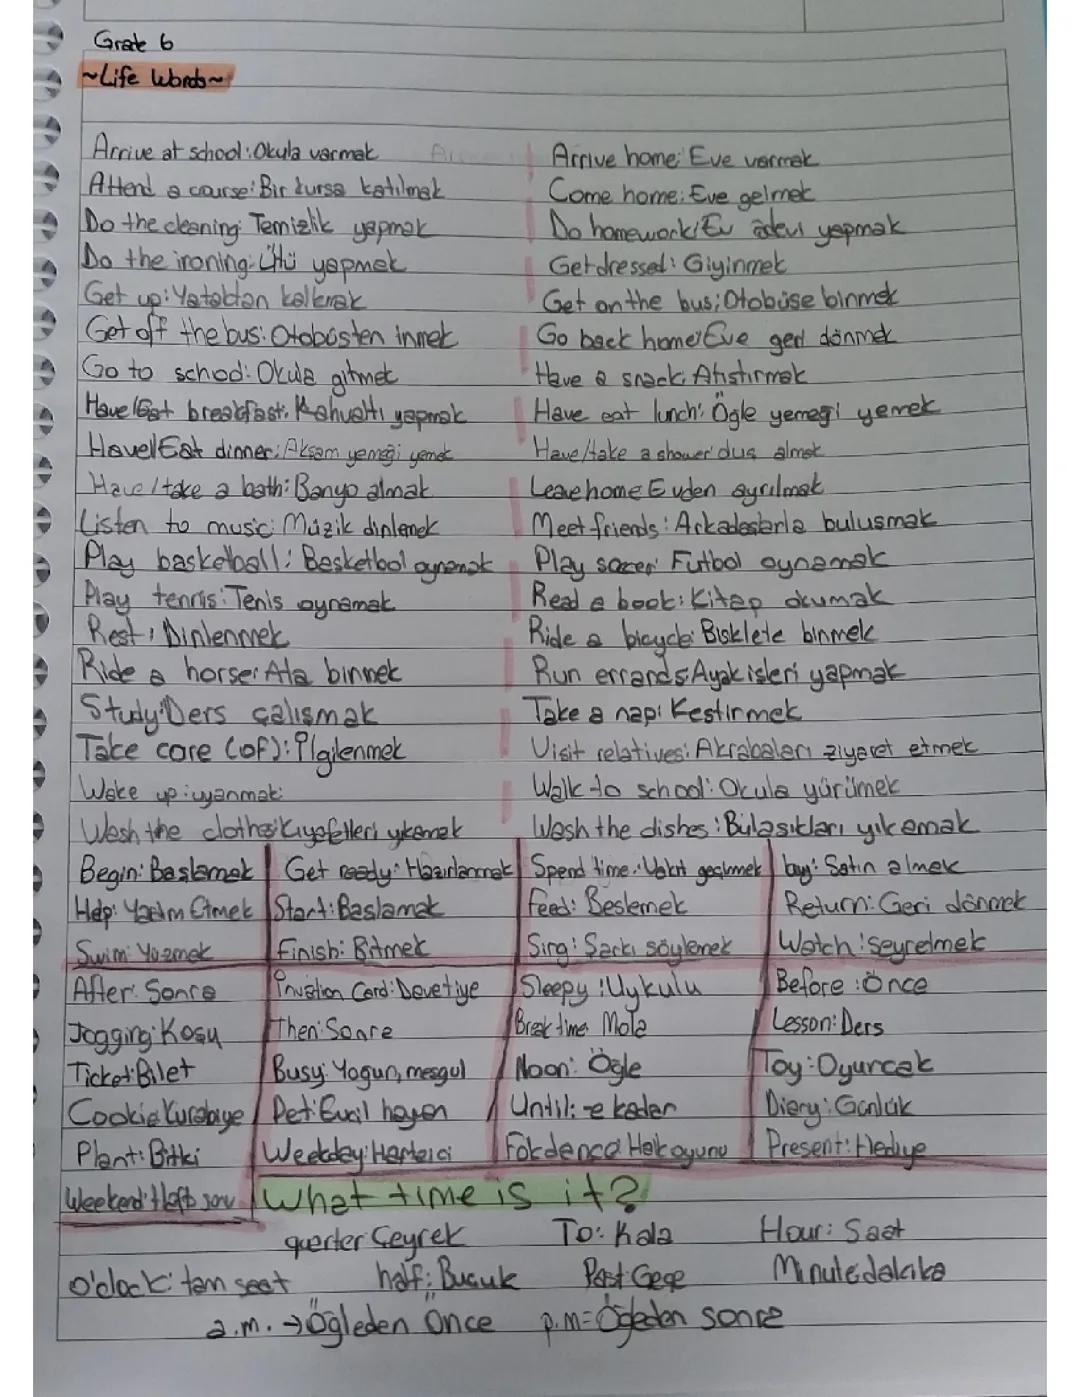 Grade 6
~Life Words~
Arrive at school: Okula varmak Arrive home: Eve varmak
Attend a course: Bir kursa katılmak Come home: Eve gelmek
Do the cleaning: Temizlik yapmak Do homework: Ev ödevi yapmak
Do the ironing: Ütü yapmak Get dressed: Giyinmek
Get up: Yataktan kalkmak Get on the bus: Otobüse binmek
Get off the bus: Otobüsten inmek Go back home: Eve geri dönmek
Go to school: Okula gitmek Have a snack: Atıştırmak
Have/Eat breakfast: Kahvaltı yapmak Have eat lunch: Öğle yemeği yemek
Have/Eat dinner: Akşam yemeği yemek Have/take a shower: duş almak
Have/take a bath: Banyo almak Leave home: Evden ayrılmak
Listen to music: Müzik dinlemek Meet friends: Arkadaşlarla buluşmak
Play basketball: Basketbol oynamak Play soccer: Futbol oynamak
Play tennis: Tenis oynamak Read a book: Kitap okumak
Rest: Dinlenmek Ride a bicycle: Bisklete binmek
Ride a horse: Ata binmek Run errands: Ayak işleri yapmak
Study: Ders çalışmak Take a nap: Kestirmek
Take care (of): İlgilenmek Visit relatives: Akrabaları ziyaret etmek
Wake up: uyanmak Walk to school: Okula yürümek
Wash the clothes: Kıyafetleri yıkamak Wash the dishes: Bulaşıkları yıkamak
Begin: Başlamak Get ready: Hazırlanmak Spend time: Vakit geçirmek buy: Satın almak
Help: Yardım Etmek Start: Başlamak Feed: Beslemek Return: Geri dönmek
Swim: Yüzmek Finish: Bitmek Sing: Şarkı söylemek Watch: Seyretmek
After: Sonra Card: Davetiye Sleepy: Uykulu Before: Önce
Jogging: Koşu Then: Sonra Break time: Mola Lesson: Ders
Ticket: Bilet Busy: Yoğun, meşgul Noon: Öğle Toy: Oyuncak
Cookie: Kurabiye Pet: Evcil hayvan Until: -e kadar Diary: Günlük
Plant: Bitki Weekday: Hafta içi Folk dance: Halk oyunu Present: Hediye
Weekend: Hafta sonu What time is it?
quarter: Çeyrek To: Kala Hour: Saat
O'clock: tam saat half: Buçuk Past: Geçe Minute: dakika
a.m. → Öğleden Önce p.m = Öğleden sonra